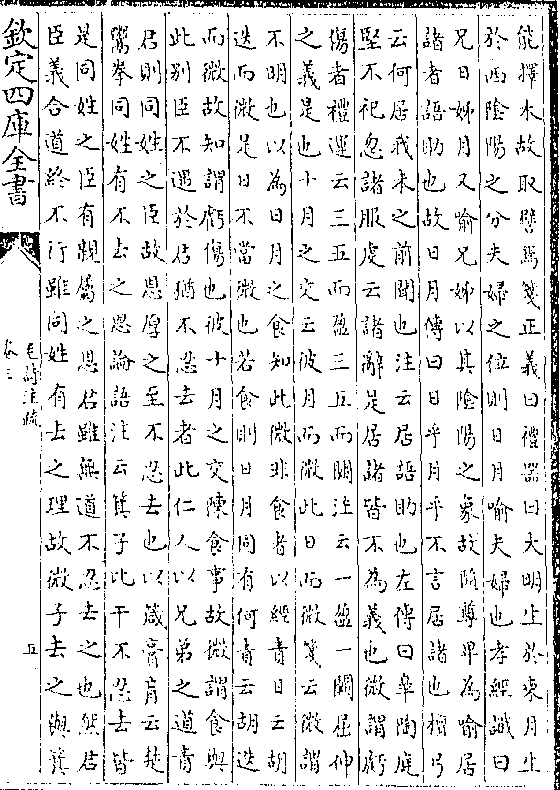 能擇木故取譬焉箋正義曰禮器曰大明生於東月生
於西陰陽之分夫婦之位則日月喻夫婦也孝經讖曰
兄日姊月又喻兄姊以其陰陽之象故隨尊卑為喻居
諸者語助也故日月傳曰日乎月乎不言居諸也檀弓
云何居我未之前聞也注云居語助也左傳曰皋陶庭
堅不祀忽諸服虔云諸辭是居諸皆不為義也微謂虧
傷者禮運云三五而盈三五而闕注云一盈一闕屈伸
之義是也十月之交云彼月而微此日而微箋云微謂
不明也以為日月之食知此微非食者以經責日云胡
迭而微是日不當微也若食則日月同有何責云胡迭
而微故知謂虧傷也彼十月之交陳食事故微謂食與
此别臣不遇於君猶不忍去者此仁人以兄弟之道責
君則同姓之臣故恩厚之至不忍去也以箴膏肓云楚
鬻拳同姓有不去之恩論語注云箕子比干不忍去皆
是同姓之臣有親屬之恩君雖無道不忍去之也然君
臣義合道終不行雖同姓有去之理故微子去之與箕
欽定四庫全書
毛詩注疏
卷三
五